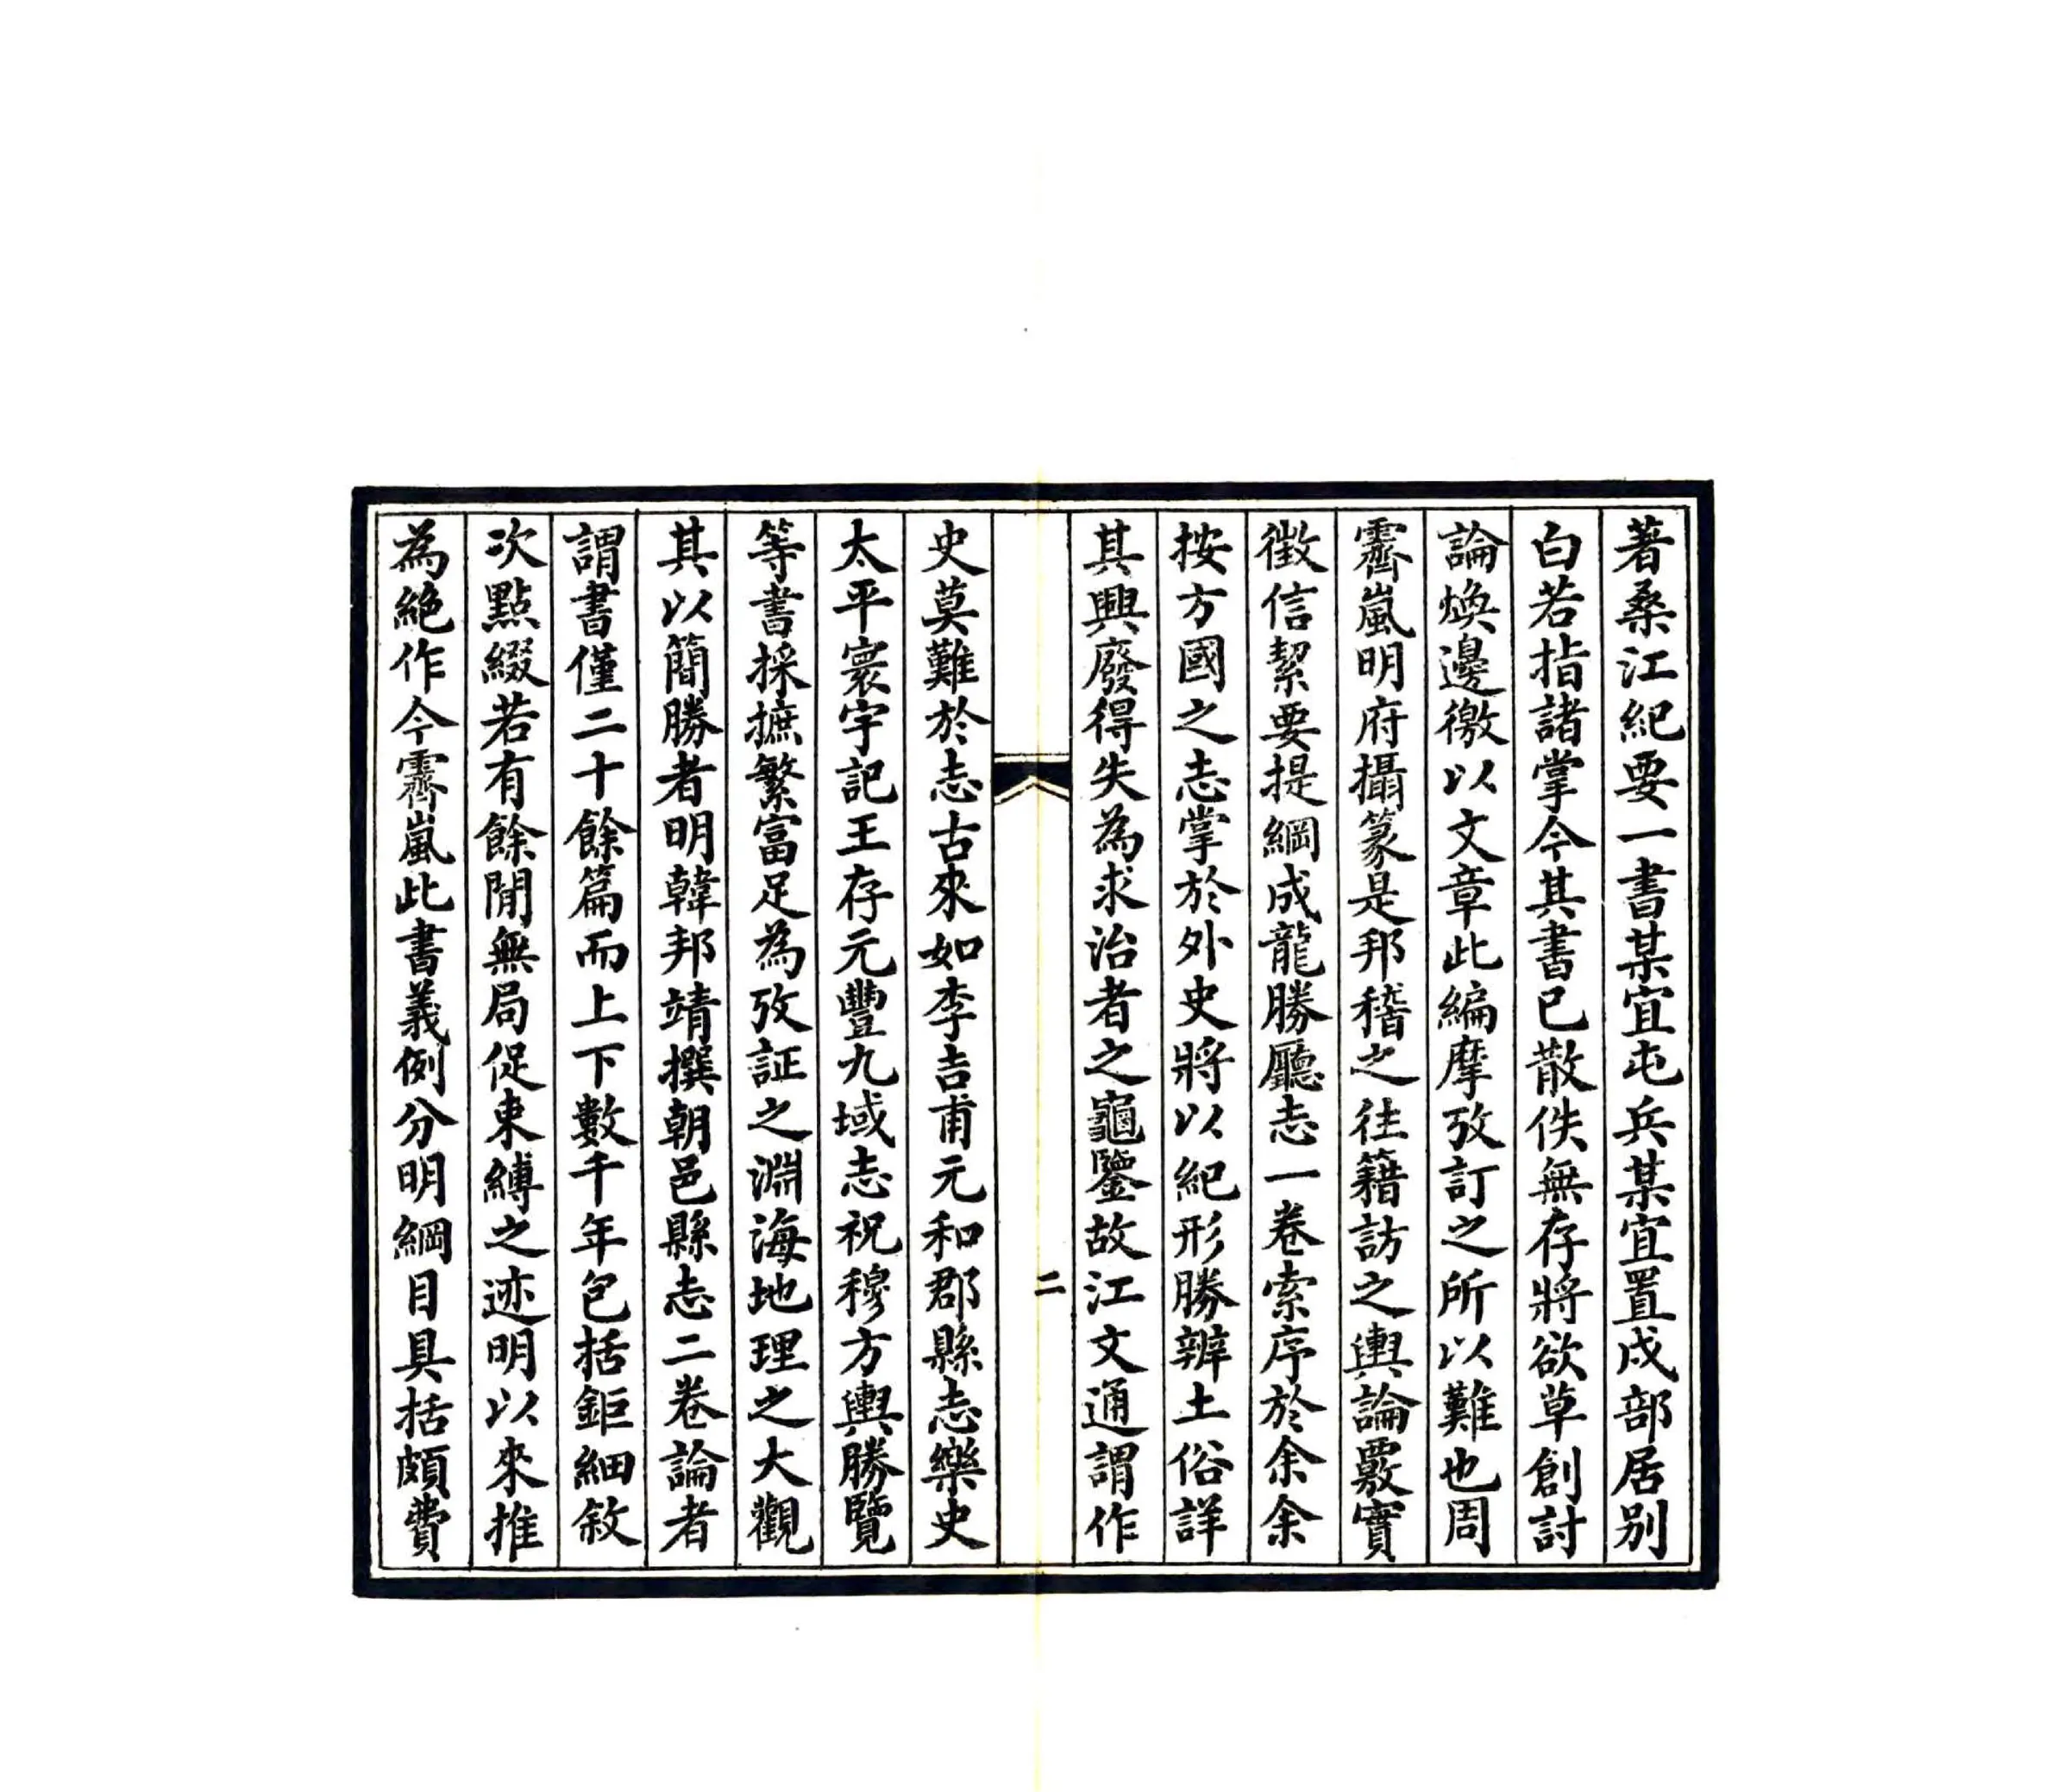 著桑江紀要一書某宜屯兵某宜置戍部居别
白若指諸掌今其書已散佚無存將欲草創討
論煥邊徼以文章此編摩攷訂之所以難也周
霽嵐明府攝篆是邦稽之往籍訪之輿論覈實
徵信絜要提綱成龍勝廳志一卷索序於余余
按方國之志掌於外史將以紀形勝辨土俗詳
其興廢得失為求治者之龜鑒故江文通謂作
二
史莫難於志古來如李吉甫元和郡縣志樂史
太平寰宇記王存元豐九域志祝穆方輿勝覽
等書採摭繁富足為攷証之淵海地理之大觀
其以簡勝者明韓邦靖撰朝邑縣志二卷論者
謂書僅二十餘篇而上下數千年包括鉅細敘
次點綴若有餘閒無局促束縛之迹明以來推
為絶作今霽嵐此書義例分明綱目具括頗費